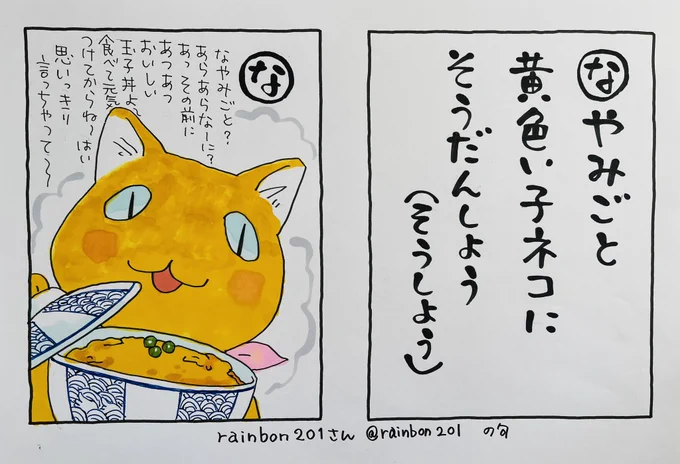 なやみごと
黄色い子ネコに
そうだんしよう
(そうしよう)
な
なやみごと?
あらあらなーに?
あっその前に
あつあつ
おいしい
玉子丼よ
食べて元気
つけてからね〜はい
思いっきり
言っちゃって〜
rainbon201さん @rainbon201 の句